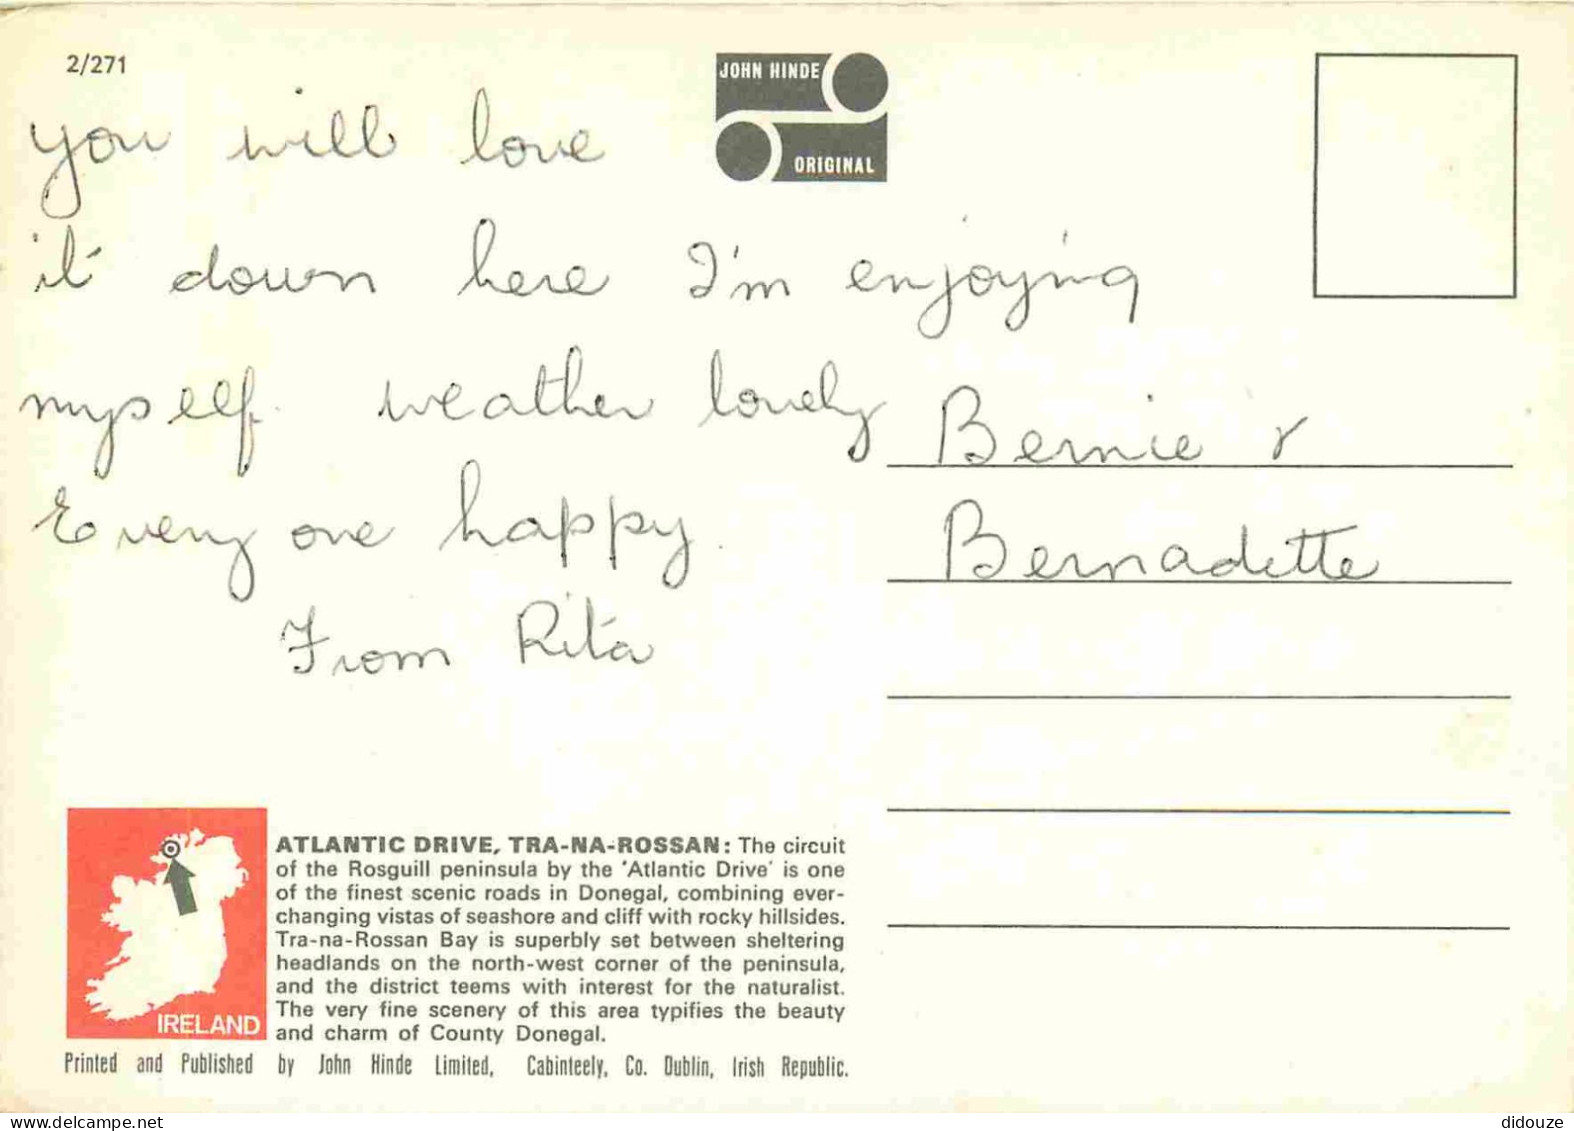 2/271
JOHN HINDE
ORIGINAL
you will love
it down here I'm enjoying
myself. weather lovely
Every one happy.
From Rita
Bernie &
Bernadette
IRELAND
ATLANTIC DRIVE, TRA-NA-ROSSAN: The circuit
of the Rosguill peninsula by the 'Atlantic Drive' is one
of the finest scenic roads in Donegal, combining ever-
changing vistas of seashore and cliff with rocky hillsides.
Tra-na-Rossan Bay is superbly set between sheltering
headlands on the north-west corner of the peninsula,
and the district teems with interest for the naturalist.
The very fine scenery of this area typifies the beauty
and charm of County Donegal.
Printed and Published by John Hinde Limited, Cabinteely, Co. Dublin, Irish Republic.
didouze